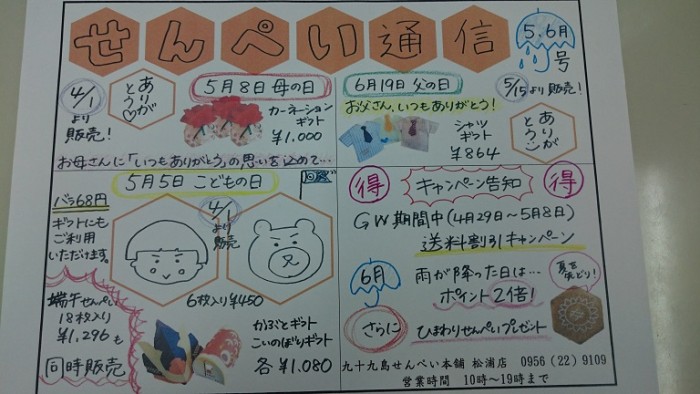 せんぺい通信
5.6月
号
4/1
より
販売!
ありが
とう♡
5月8日 母の日
カーネーション
ギフト
¥1.000
お母さんに「いつもありがとう」の思いを込めて…
6月19日 父の日
5/15より販売!
お父さん、いつもありがとう!
シャツ
ギフト
¥864
ありが
とう
5月5日 こどもの日
バラ68円
ギフトにも
ご利用
いただけます。
4/1
より
販売
6枚入り¥450
端午せんぺい
18枚入り
¥1.296も
同時販売
かぶとギフト
こいのぼりギフト
各¥1.080
得
キャンペーン告知
得
GW期間中(4月29日~5月8日)
送料割引キャンペーン
6月
雨が降った日は…
ポイント2倍!
さらに
ひまわりせんぺいプレゼント
夏を
先どり!
九十九島せんぺい本舗 松浦店 0956(22)9109
営業時間 10時~19時まで